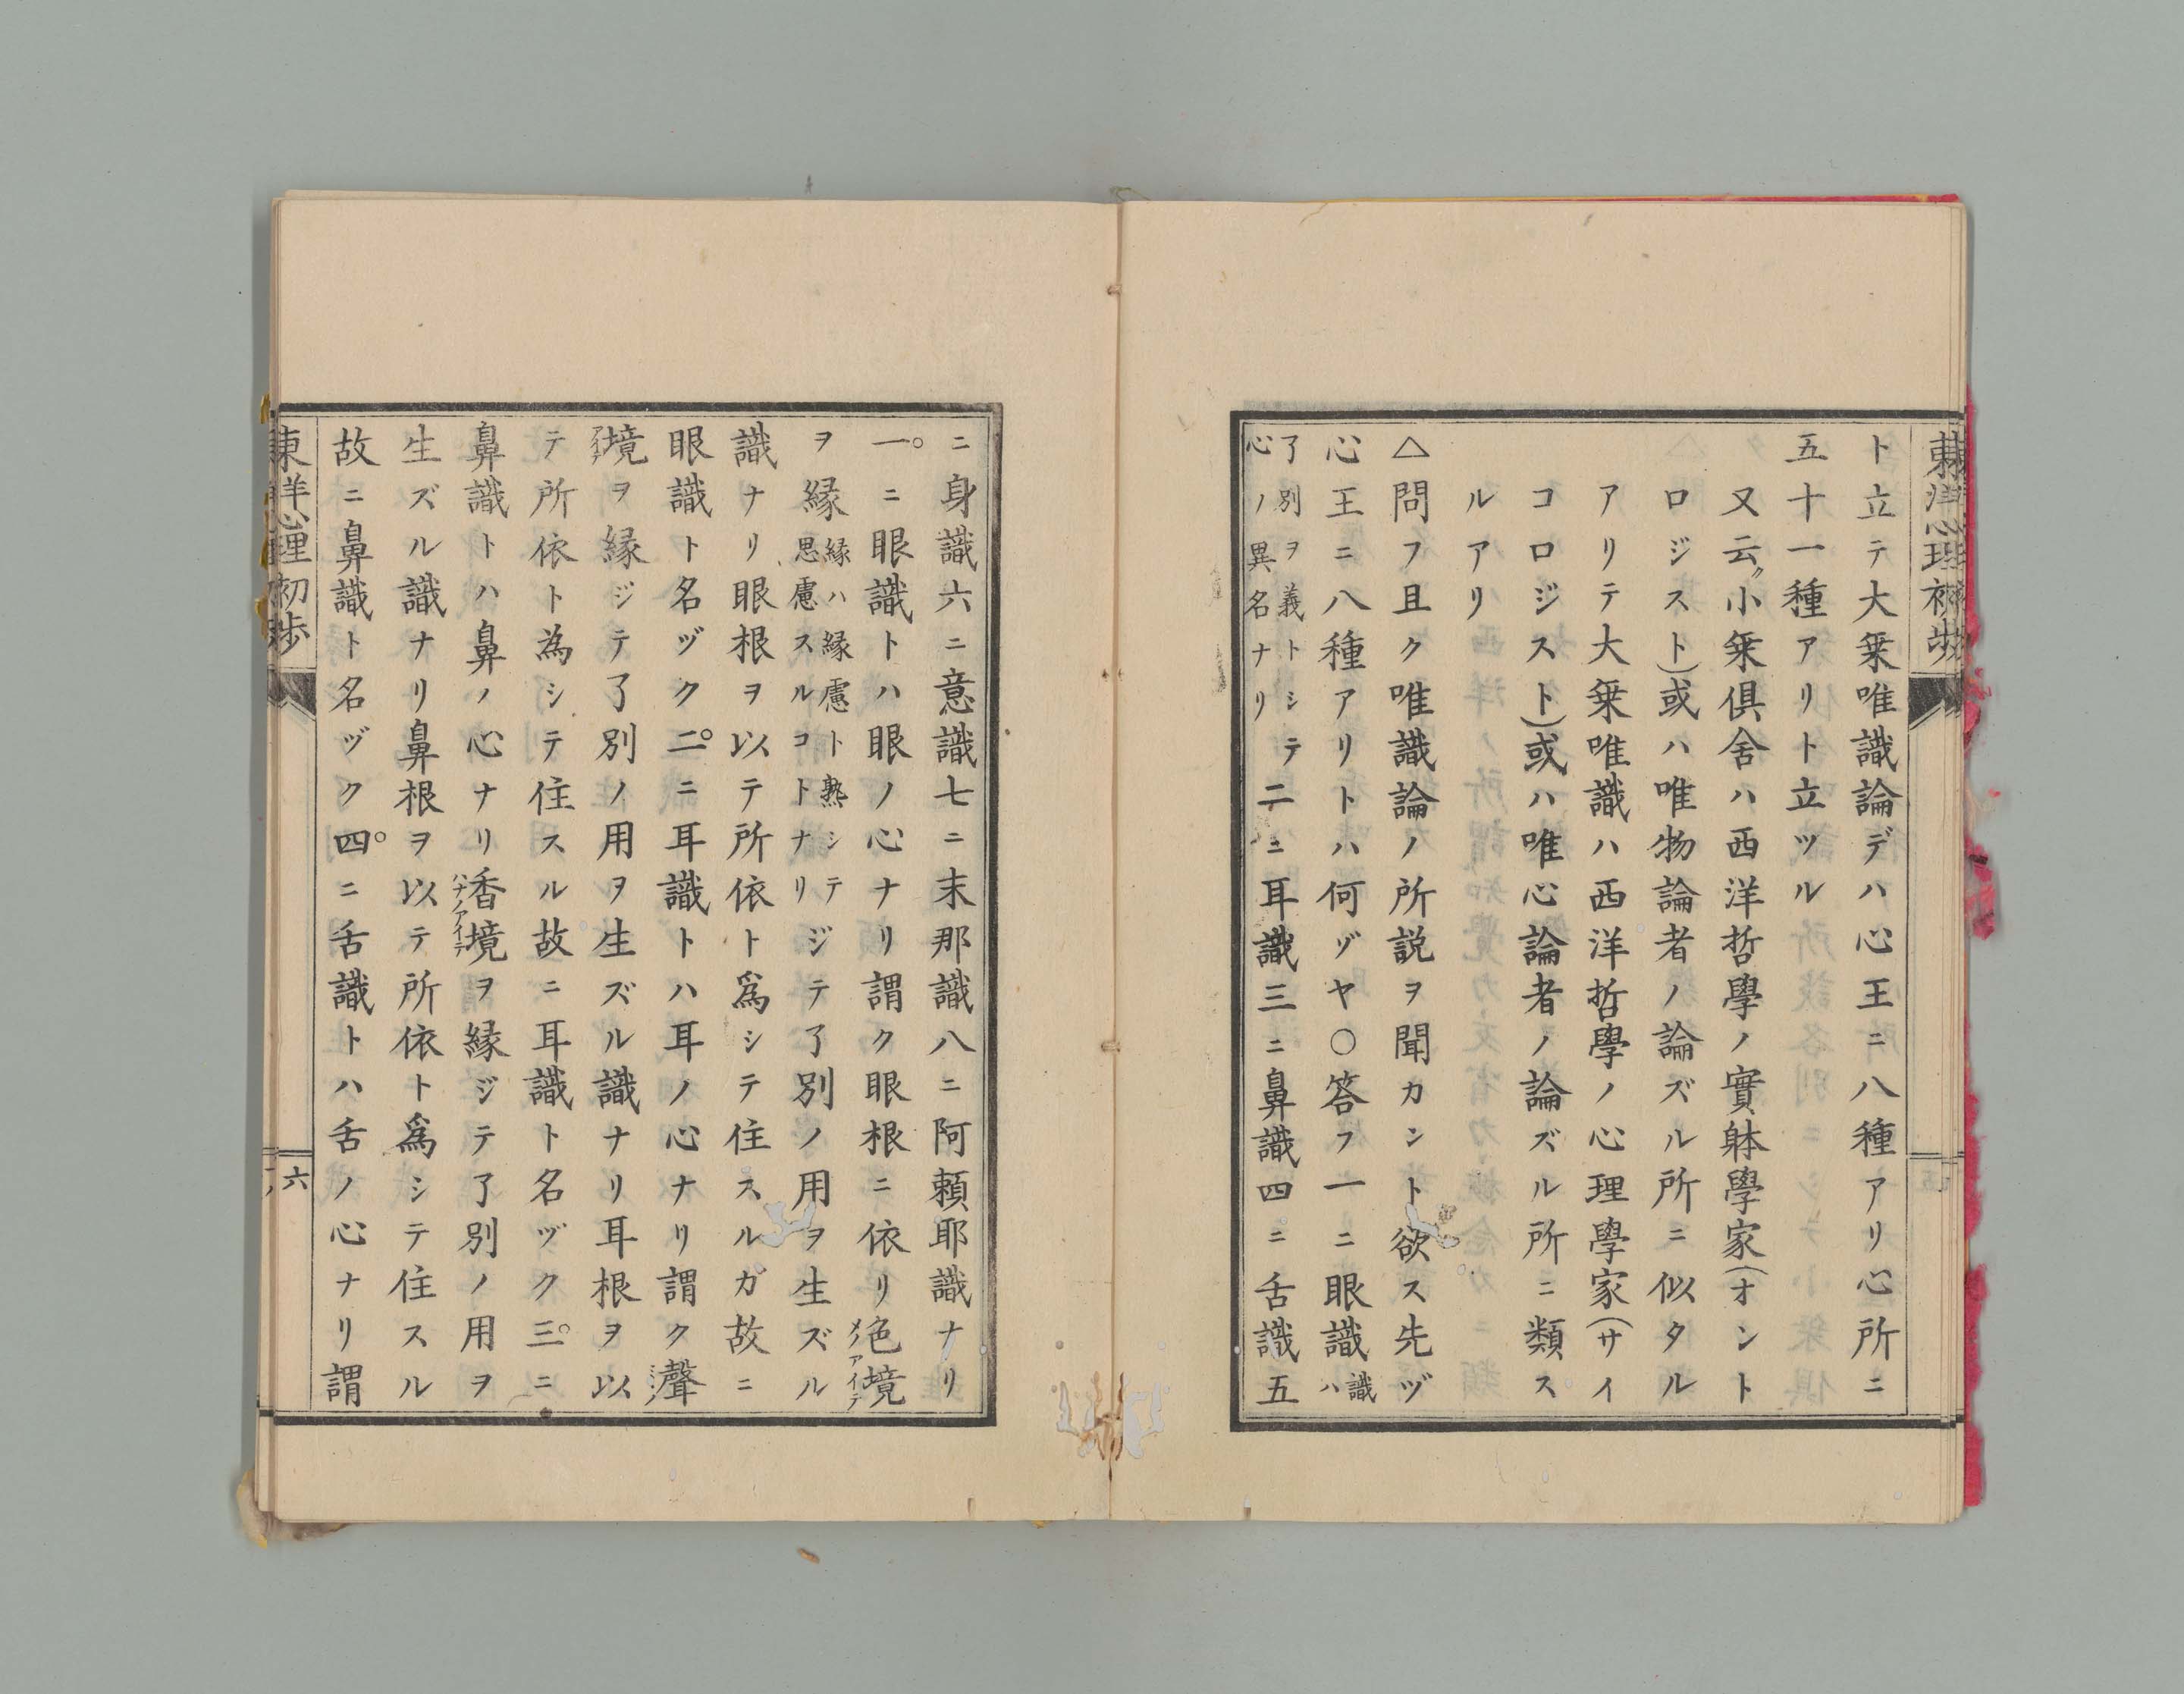 東洋心理初歩
ト立テ大乗唯識論デハ心王ニ八種アリ心所ニ
五十一種アリト立ツル
又云ク小乗俱舎ハ西洋哲學ノ實躰學家(オント
ロジスト)或ハ唯物論者ノ論ズル所ニ似タル
アリテ大乗唯識ハ西洋哲學ノ心理學家(サイ
コロジスト)或ハ唯心論者ノ論ズル所ニ類ス
ルアリ
△問フ且ク唯識論ノ所説ヲ聞カント欲ス先ヅ
心王ニ八種アリトハ何ゾヤ○答フ一ニ眼識識ハ
了別ヲ義トシテ心ノ異名ナリ二ニ耳識三ニ鼻識四ニ舌識五
ニ身識六ニ意識七ニ末那識八ニ阿頼耶識ナリ
一。ニ眼識トハ眼ノ心ナリ謂ク眼根ニ依リ色境メノアイテ
ヲ縁縁ハ縁慮ト熟シテ思慮スルコトナリジテ了別ノ用ヲ生ズル
識ナリ眼根ヲ以テ所依ト爲シテ住スルガ故ニ
眼識ト名ヅク二。ニ耳識トハ耳ノ心ナリ謂ク聲
境ヲ縁ジテ了別ノ用ヲ生ズル識ナリ耳根ヲ以
テ所依ト為シテ住スル故ニ耳識ト名ヅク三。ニ
鼻識トハ鼻ノ心ナリ香境ハナノアイテヲ縁ジテ了別ノ用ヲ
生ズル識ナリ鼻根ヲ以テ所依ト爲シテ住スル
故ニ鼻識ト名ヅク四。ニ舌識トハ舌ノ心ナリ謂
東洋心理初歩
六